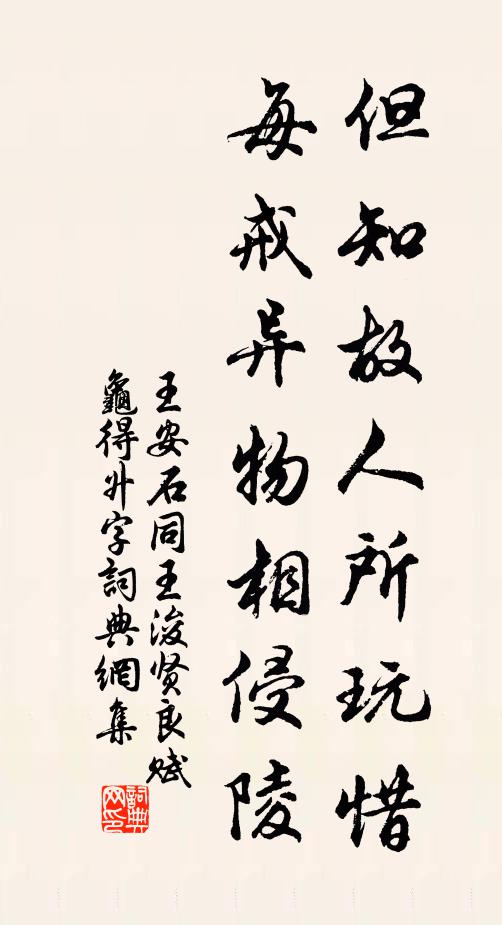 但知故人所玩惜
每戒异物相侵陵
王安石同王浚贤良赋
龜得升字詞典網集
詞典
网印